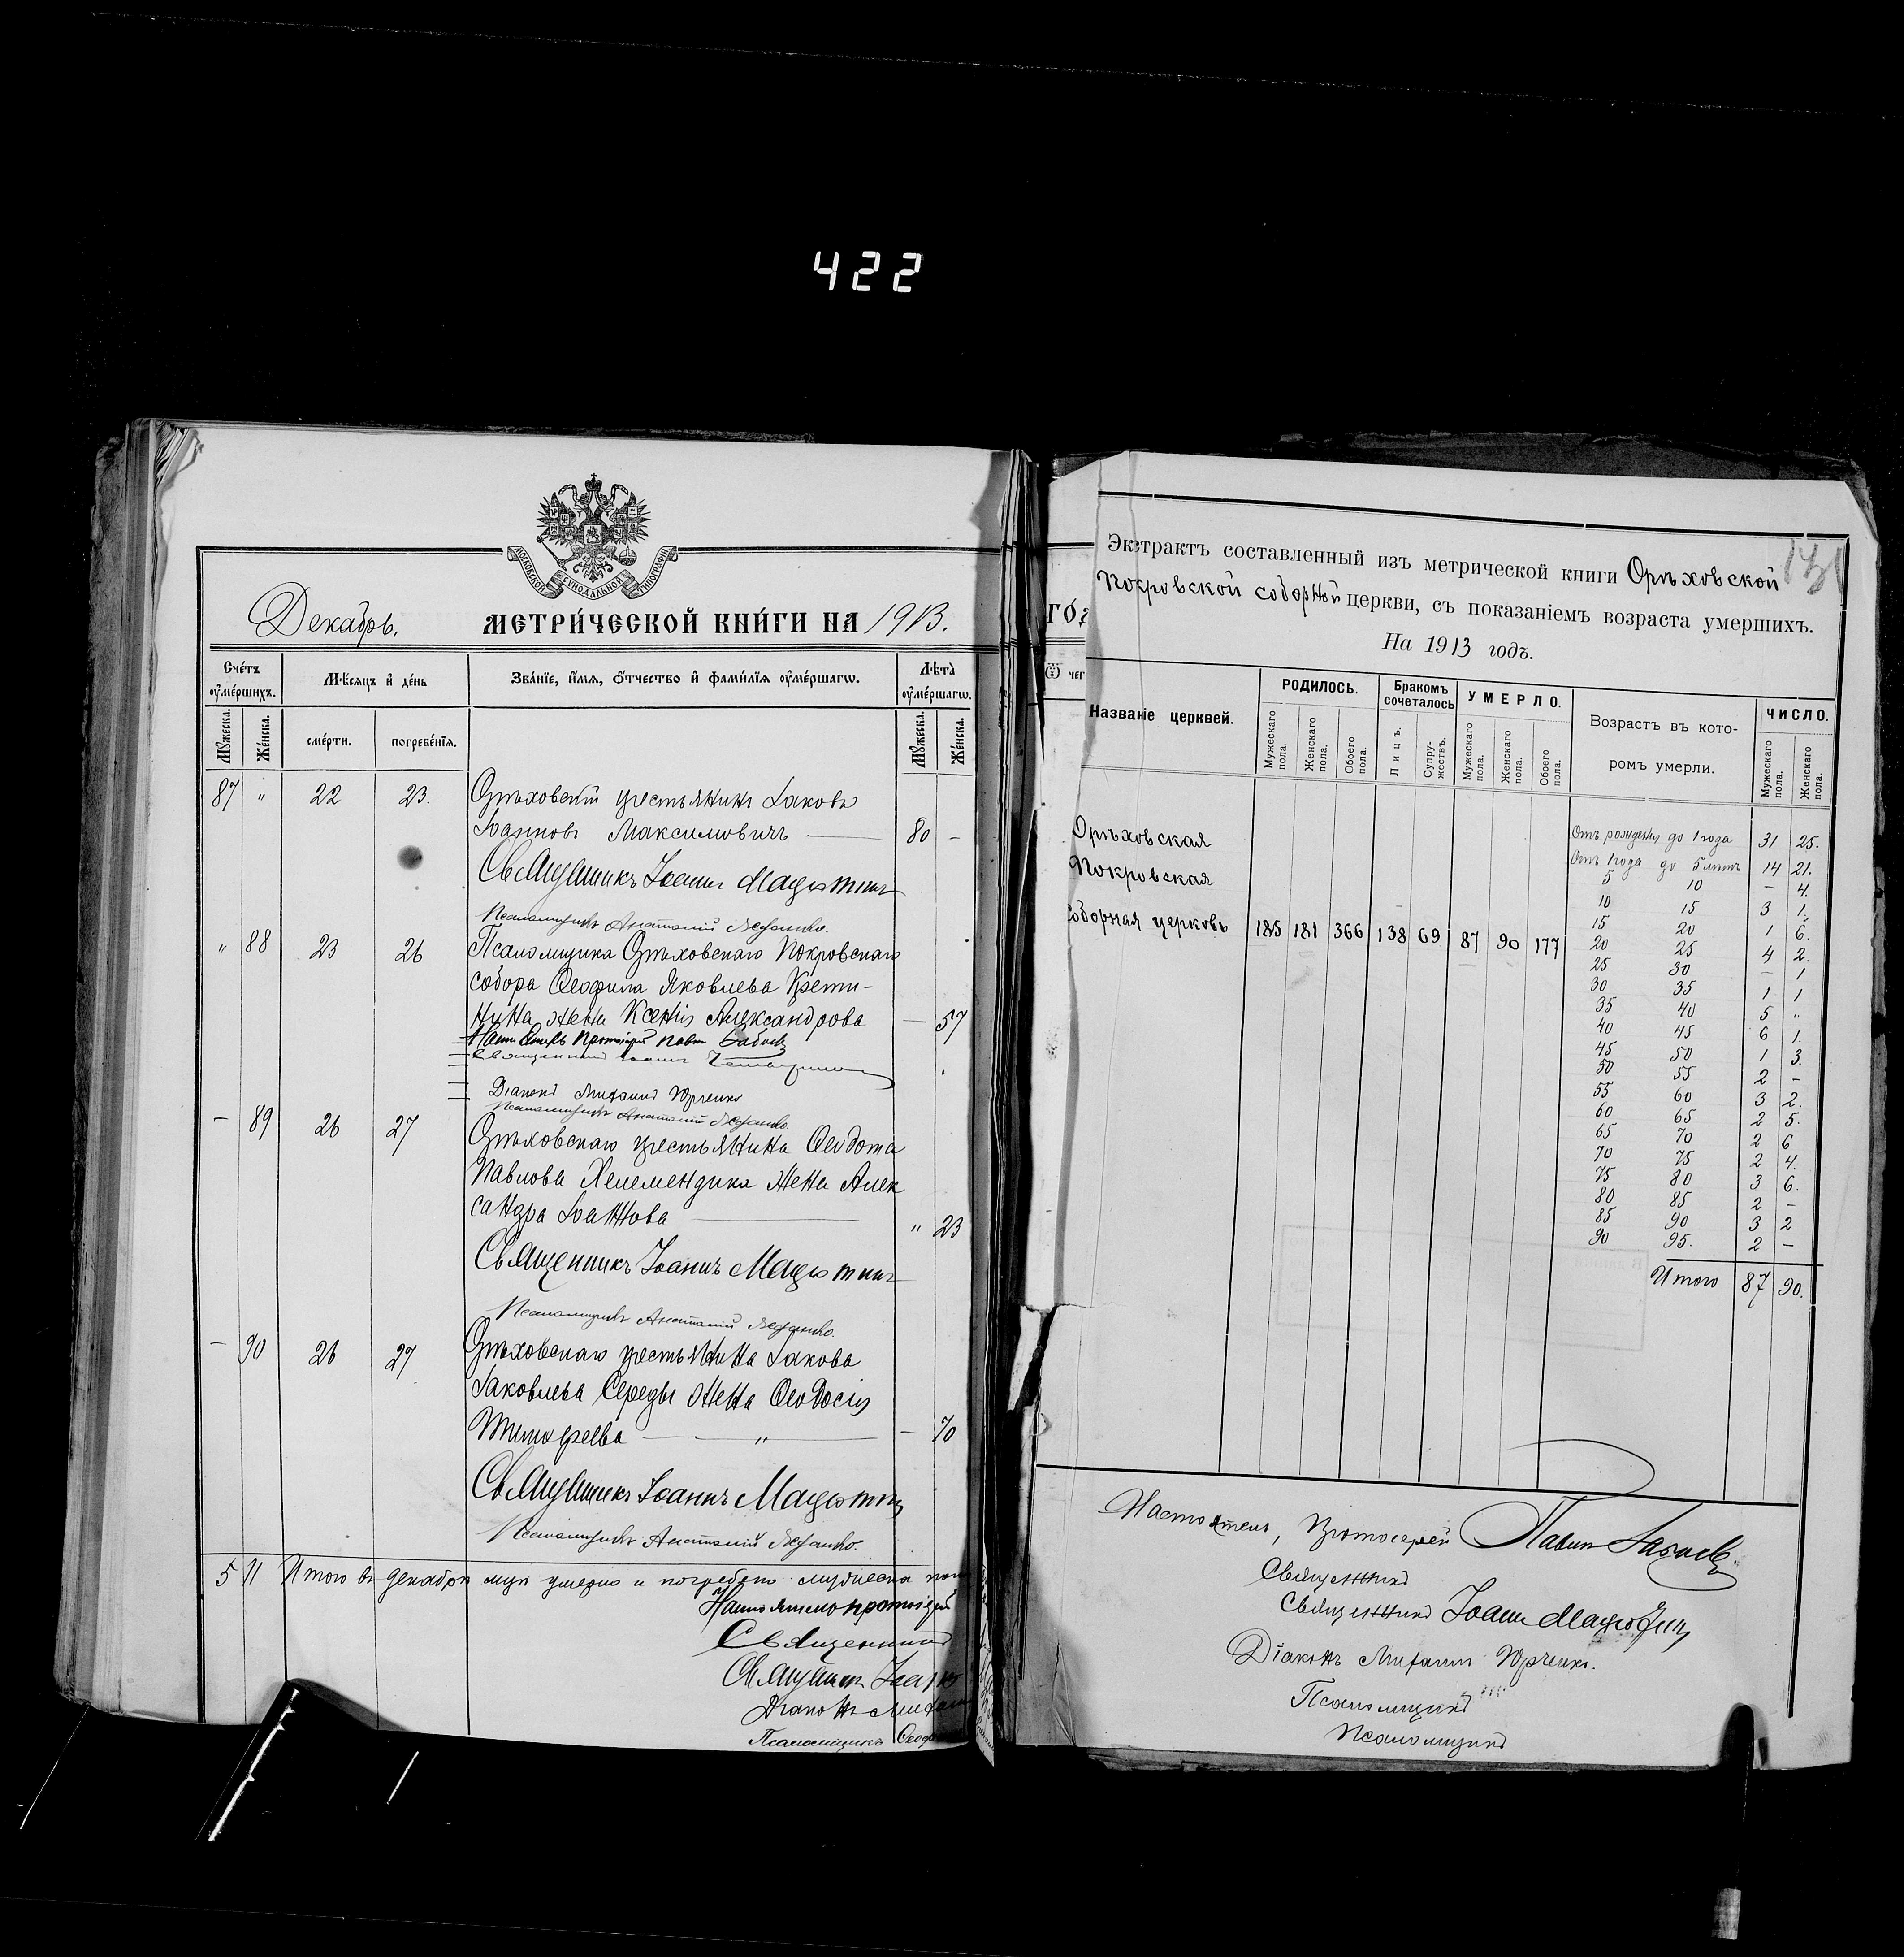 422
МОСКОВСКОЙ СѴНОДАЛЬНОЙ ТИПОГРАФІИ
Декабрь. МЕТРИ́ЧЕСКОЙ КНИ́ГИ НА 1913.
Сче́тъ ᲂу҆ме́ршихъ. Мѣ́сяцъ и҆ де́нь Зва́нїе, и҆́мя, ѻ҆́тчество и҆ фами́лїя ᲂу҆ме́ршагѡ. Лѣ̀та ᲂу҆ме́ршагѡ.
Мꙋ́жеска. Же́нска. сме́рти. погребе́нїѧ. Мꙋ́жеска. Же́нска.
87 " 22 23. Орѣховскій крестьянинъ Іаковъ
Іоанновъ Максимовичъ — 80 -
Священникъ Іоаннъ
Псаломщикъ Анатолій
" 88 23 26 Псаломщика Орѣховскаго Покровскаго
собора Ѳеофила Яковлева
жена Ксенія Александрова — 57
Настоятель Протоіерей Павелъ
Священникъ Іоаннъ
Діаконъ Михаилъ Юрченко
Псаломщикъ Анатолій
- 89 26 27 Орѣховскаго крестьянина Ѳеодота
Павлова Хелемендика жена Алек
сандра Іоаннова — " 23
Священникъ Іоаннъ
Псаломщикъ Анатолій
- 90 26 27 Орѣховскаго крестьянина Іакова
Іаковлева Середы жена Ѳеодосія
Тимофеева — " — - 70
Священникъ Іоаннъ
Псаломщикъ Анатолій
5 11 Итого въ декабрѣ умерло и погребено мужеска
Настоятель протоіерей
Священникъ
Священникъ
Діаконъ
Псаломщикъ
ГО́Д
Ѿ чег
131
Экстрактъ составленный изъ метрической книги Орѣховской
Покровской соборной церкви, съ показаніемъ возраста умершихъ.
На 1913 годъ.
Названіе церквей. РОДИЛОСЬ. Бракомъ сочеталось УМЕРЛО. Возрастъ въ кото-
ромъ умерли. ЧИСЛО.
Мужескаго пола. Женскаго пола. Обоего пола. Лицъ. Супружествъ. Мужескаго пола. Женскаго пола. Обоего пола. Мужескаго пола. Женскаго пола.
Орѣховская
Покровская
соборная церковь 185 181 366 138 69 87 90 177
Отъ рожденія до 1 года 31 25.
Отъ 1 года до 5 лѣтъ 14 21.
5 10 — 4.
10 15 3 1.
15 20 1 6.
20 25 4 2.
25 30 — 1
30 35 1 1
35 40 5 "
40 45 6 1.
45 50 1 3.
50 55 2 -
55 60 3 2.
60 65 2 5.
65 70 2 6
70 75 2 4.
75 80 3 6.
80 85 2 -
85 90 3 2
90 95. 2 —
Итого 87 90.
Настоятель, Протоіерей Павелъ
Священникъ
Священникъ Іоаннъ
Діаконъ Михаилъ Юрченко.
Псаломщикъ
Псаломщикъ